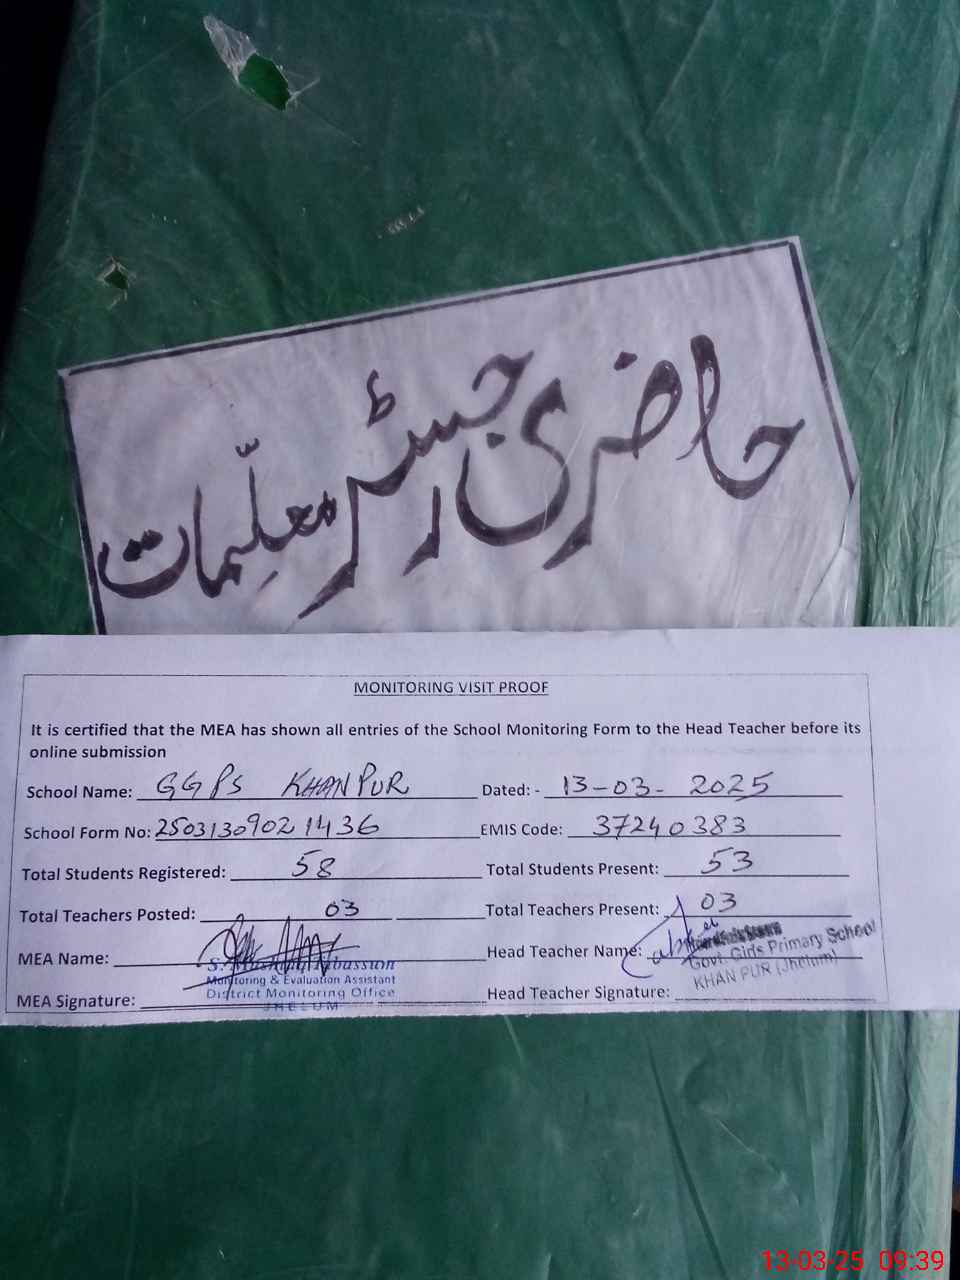 حاضری رجسٹر معلّمات
MONITORING VISIT PROOF
It is certified that the MEA has shown all entries of the School Monitoring Form to the Head Teacher before its
online submission
School Name: GGPS KHANPUR Dated: - 13-03-2025
School Form No: 2503130902 1436 EMIS Code: 37240383
Total Students Registered: 58 Total Students Present: 53
Total Teachers Posted: 03 Total Teachers Present: 03
MEA Name: Head Teacher Name:
Tabassum
Monitoring & Evaluation Assistant
District Monitoring Office
JHELUM
Govt. Girls Primary School
KHAN PUR (Jhelum)
MEA Signature: Head Teacher Signature:
13-03-25 09:39